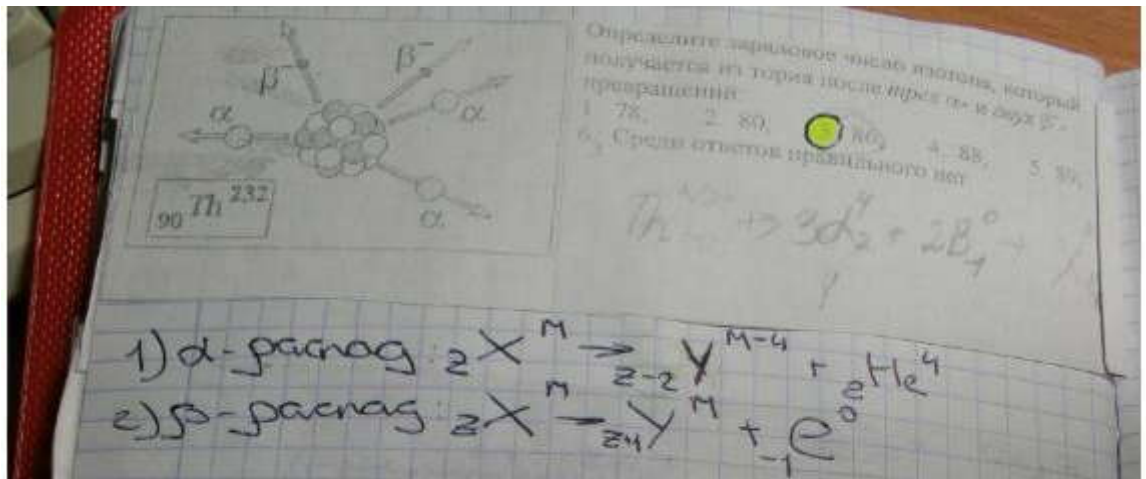 β⁻ β⁻
α α
α
₉₀Th²³²
Определите зарядовое число изотопа, который
получается из тория после трёх α- и двух β⁻-
превращений.
1. 78, 2. 80, 86, 4. 88, 5. 89,
6. Среди ответов правильного нет
Th → 3α₂⁴ + 2β₋₁⁰ +
1) α-распад: zXᴹ → z-2Yᴹ⁻⁴ + ₂He⁴
2) β-распад: zXᴹ → z+1Yᴹ + ₋₁e⁰